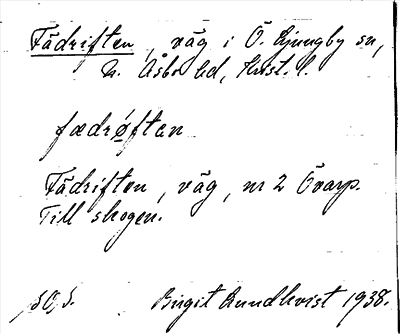 Fädriften, väg i Ö. Ljungby sn,
N. Åsbo hd, Krist. l.
fædrøften
Fädriften, väg, nr 2 Övarp.
Till skogen.
Birgit Rundkvist 1938.